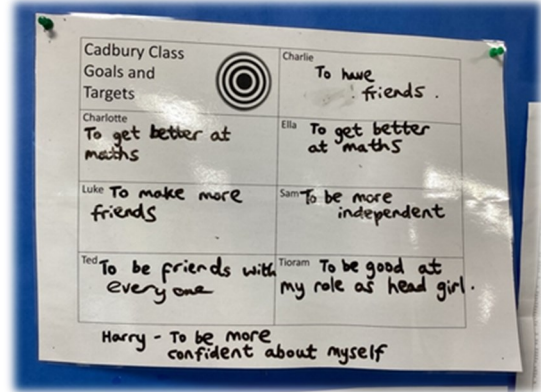 Cadbury Class
Goals and
Targets
Charlie
To have
friends .
Charlotte
To get better at
maths
Ella To get better
at maths
Luke To make more
friends
Sam To be more
independent
Ted To be friends with
every one
Tioram To be good at
my role as head girl .
Harry - To be more
confident about myself